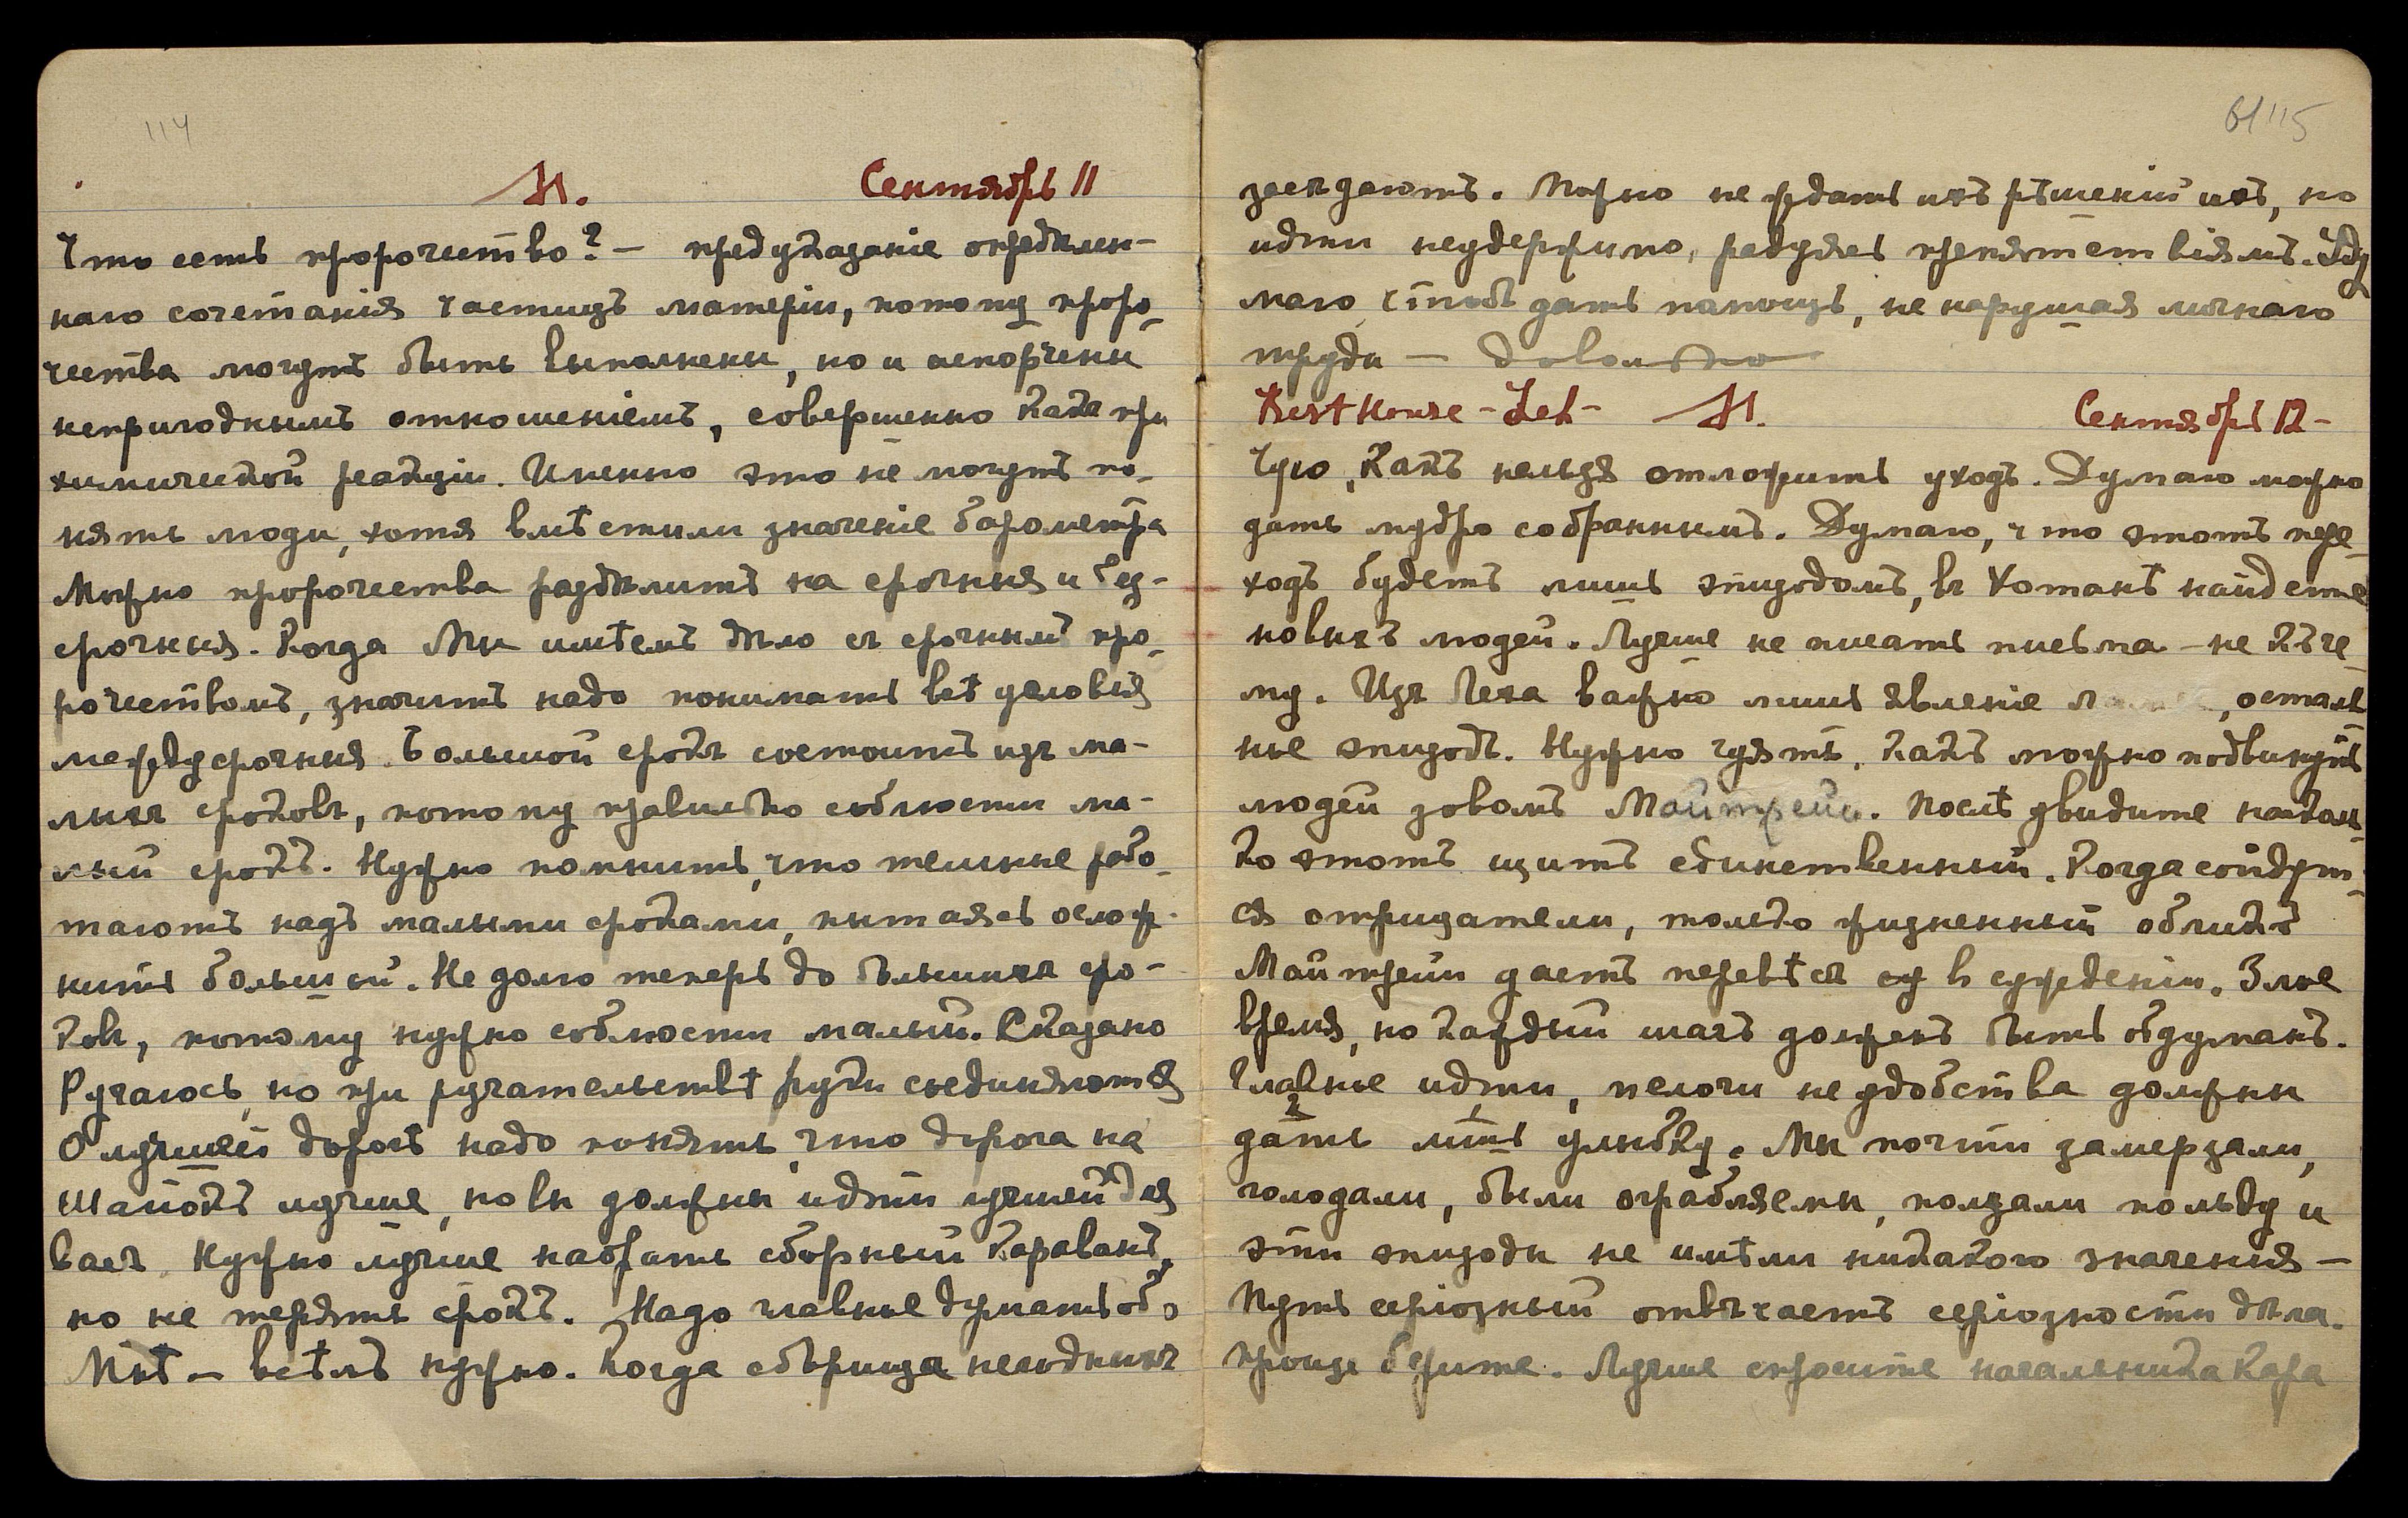 114
М. Сентябрь 11
Что есть пророчество? – предуказаніе опредѣлен-
наго сочетанія частицъ матеріи, потому проро-
чества могутъ быть выполнены, но и испорчены
непригоднымъ отношеніемъ, совершенно какъ при
химической реакціи. Именно это не могутъ по-
нять люди, хотя вмѣстили значеніе барометра
Можно пророчества раздѣлить на срочныя и без-
срочныя. Когда Мы имѣемъ дѣло съ срочнымъ про-
рочествомъ, значитъ надо понимать всѣ условія
междусрочныя. Большой срокъ состоитъ изъ ма-
лыхъ сроковъ, потому правильно соблюсти ма-
лый срокъ. Нужно помнить, что темные рабо-
таютъ надъ малыми сроками, пытаясь ослож-
нить большой. Не долго теперь до большихъ сро-
ковъ, потому нужно соблюсти малый. Сказано
Ручаюсь, но при ручательствѣ руки съединяются
О лучшей дорогѣ надо понять, что дорога на
Шайокъ лучше, но вы должны идти лучшей для
васъ. Нужно лучше набрать сборный караванъ,
но не терять срокъ. Надо главные думать обо
Мнѣ – всѣмъ нужно. Когда сборища негодныхъ
61 115
засѣдаютъ. Можно не ждать ихъ рѣшеній ихъ, но
идти неудержимо, радуясь препятствіямъ. Ду
маю чтобъ дать помощь, не нарушая личнаго
труда – довольно
Rest House – Leh – М. Сентябрь 12 –
Чую, какъ нельзя отложить уходъ. Думаю можно
дать мудро собраннымъ. Думаю, что этотъ пере-
ходъ будетъ лишь эпизодомъ, въ Хотанѣ найдете
новыхъ людей. Лучше не писать письма – не къ че-
му. Изъ Леха важно лишь явленіе , осталь
ные эпизодъ. Нужно чуять, какъ можно подвинуть
людей зовомъ Майтрейи. Послѣ увидите насколь
ко этотъ щитъ единственный. Когда сойдут-
ся отрицатели, только жизненный обликъ
Майтрейи даетъ перевѣсъ въ сужденіи. Злые
время, но каждый шагъ долженъ быть обдуманъ.
Главные идти, мелочи неудобства должны
дать лишь улыбку. Мы почти замерзали,
голодали, были ограбляемы, ползали по льду и
эти эпизоды не имѣли никакого значенія –
Путь серіозный отвѣчаетъ серіозности дѣла.
проще берите. Лучше спросите начальника кара